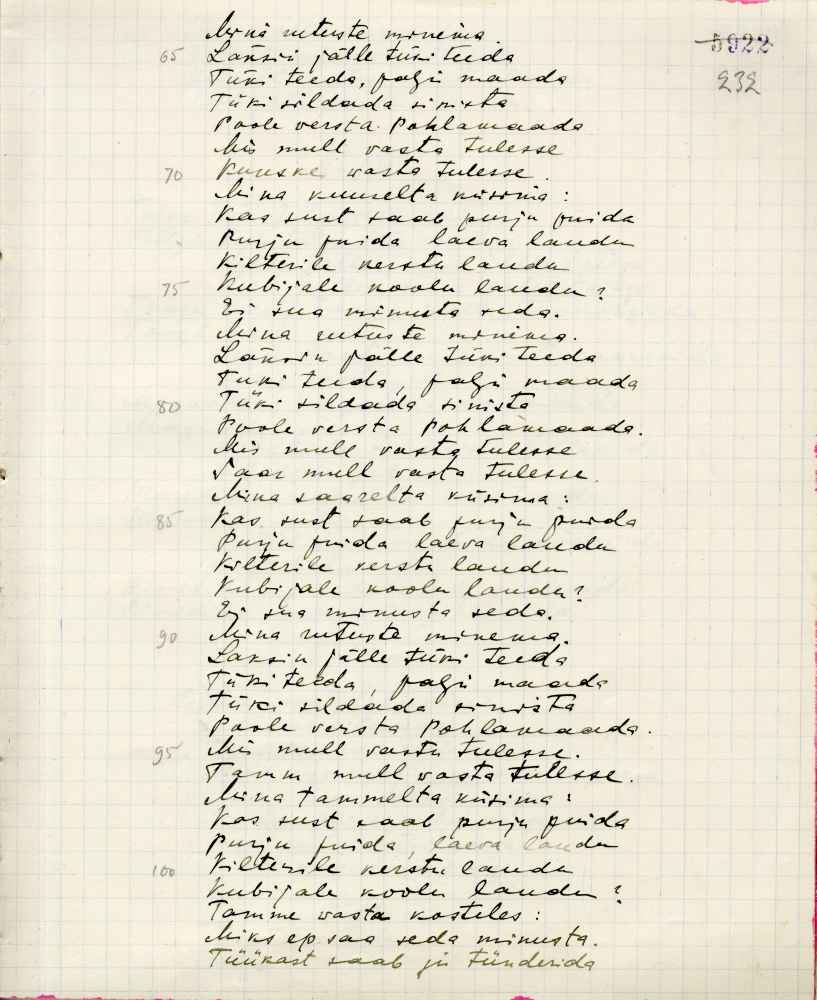 5922
232
Mina rutuste minema.
65 Läksin jälle tüki teeda
Tüki teeda, palju maada
Tüki sildada sinista
Poole versta Pohlamaada
Mis mull vasta tulesse
70 Kuuske vasta tulesse.
Mina kuuselta küsima:
Kas sust saab purju puida
Purju puida laeva lauda
Kilterile kerstu lauda
75 Kubijale koolu lauda?
Ei saa minusta seda.
Mina rutuste minema.
Läksin jälle tüki teeda
Tüki teeda, palju maada
80 Tüki sildada sinista
Poole versta Pohlamaada.
Mis mull vasta tulesse
Saar mull vasta tulesse.
Mina saarelta küsima:
85 Kas sust saab purju puida
Purju puida laeva lauda
Kilterile kerstu lauda
Kubijale koolu lauda?
Ei saa minusta seda.
90 Mina rutuste minema.
Läksin jälle tüki teeda
Tüki teeda, palju maada
Tüki sildada sinista
Poole versta Pohlamaada.
95 Mis mull vastu tulesse.
Tamm mull vasta tulesse.
Mina tammelta küsima:
Kas sust saab purju puida
Purju puida, laeva lauda
100 Kilterile kerstu lauda
Kubijale koolu lauda?
Tamme vasta kosteles:
Miks ep saa seda minusta.
Tüükast saab ju tünderida